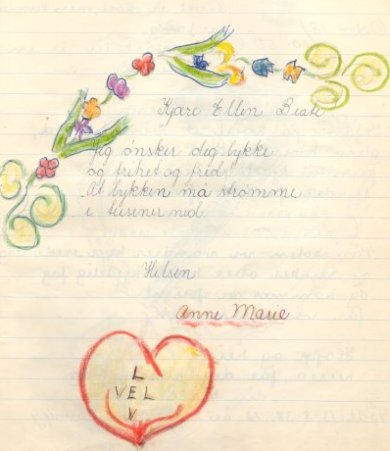 Kjære Ellen Beate
Jeg ønsker dig lykke
og trihet og fred
At lykken må strømme
i tusiner ned.
Hilsen
Anne Marie
L
VEL
V